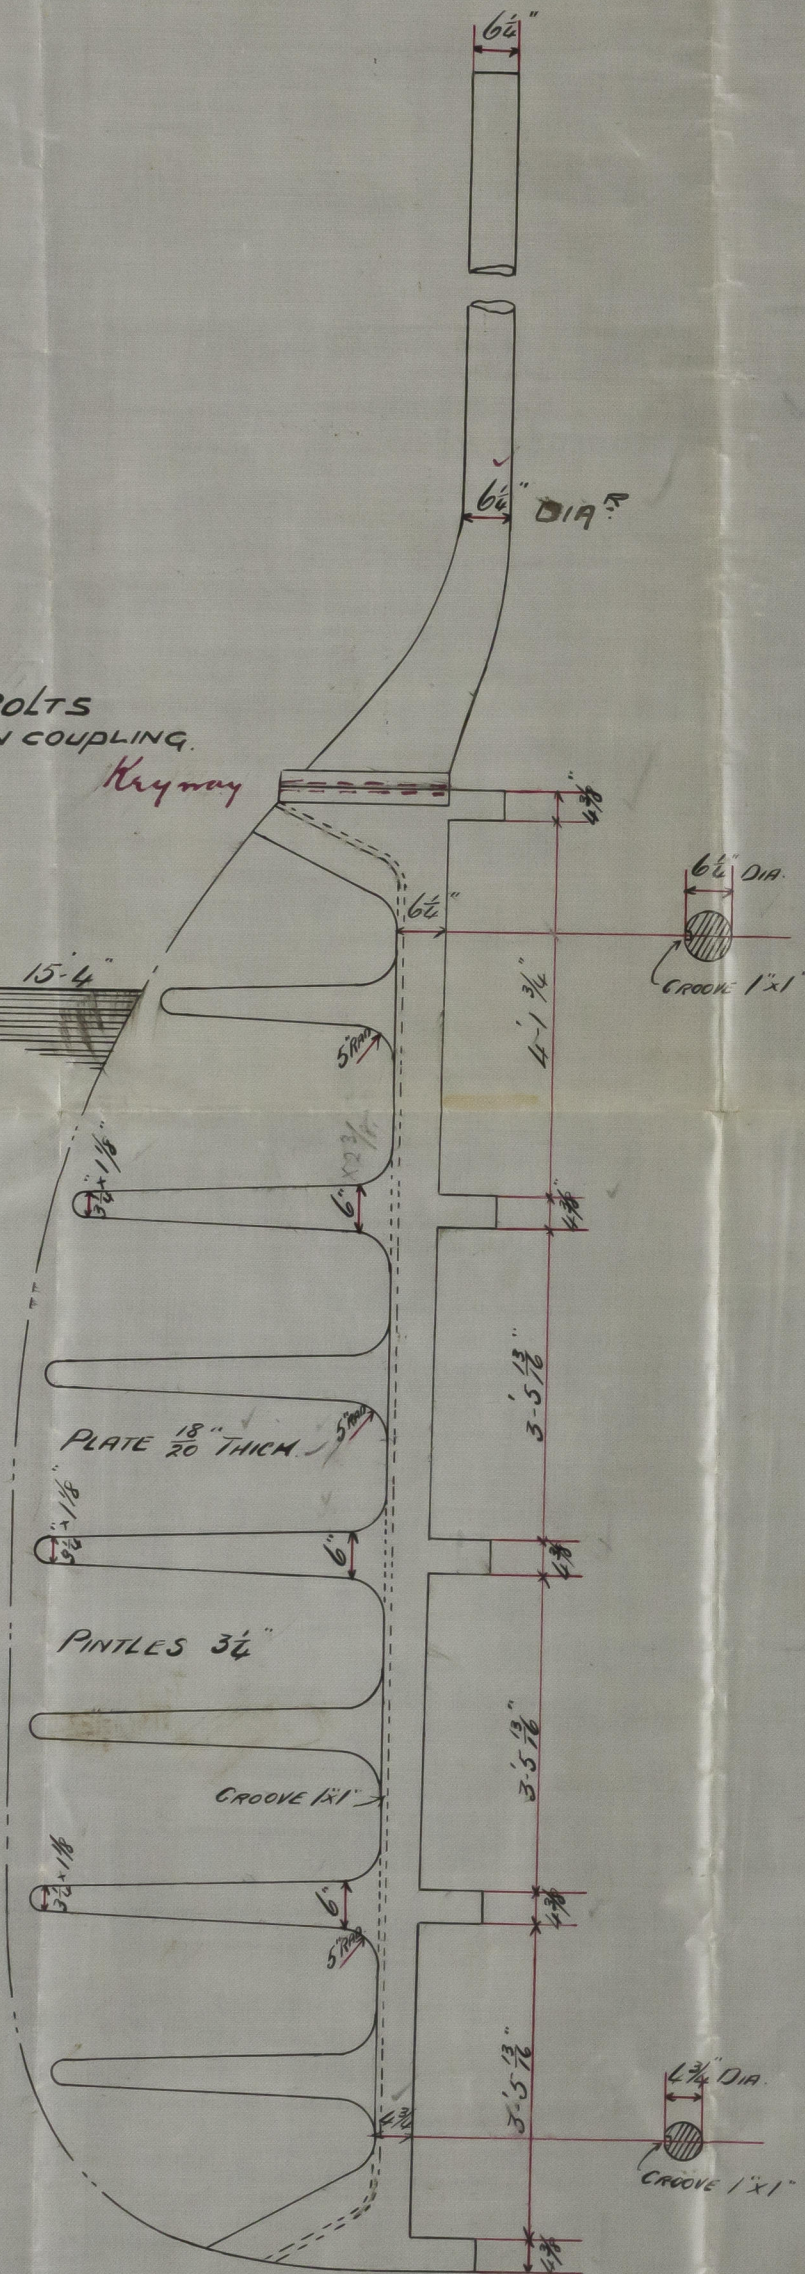 6¼"
6¼" DIAR
OLTS
COUPLING.
Keyway
4⅜"
6¼" DIA.
6¼"
GROOVE 1"X1"
15'-4"
4'-1 ¾"
5" RAD
3¼" x 1⅛"
6" x 2⅜
4⅜"
3'-5 13/16"
PLATE 18/20" THICK.
5" RAD
3¼" x 1⅛"
6"
4⅜"
PINTLES 3¼"
3'-5 13/16"
GROOVE 1"X1"
3¼ x 1⅛
6"
4⅜"
5" RAD
3'-5 13/16"
4¾" DIA.
4¾
GROOVE 1"X1"
4⅜"